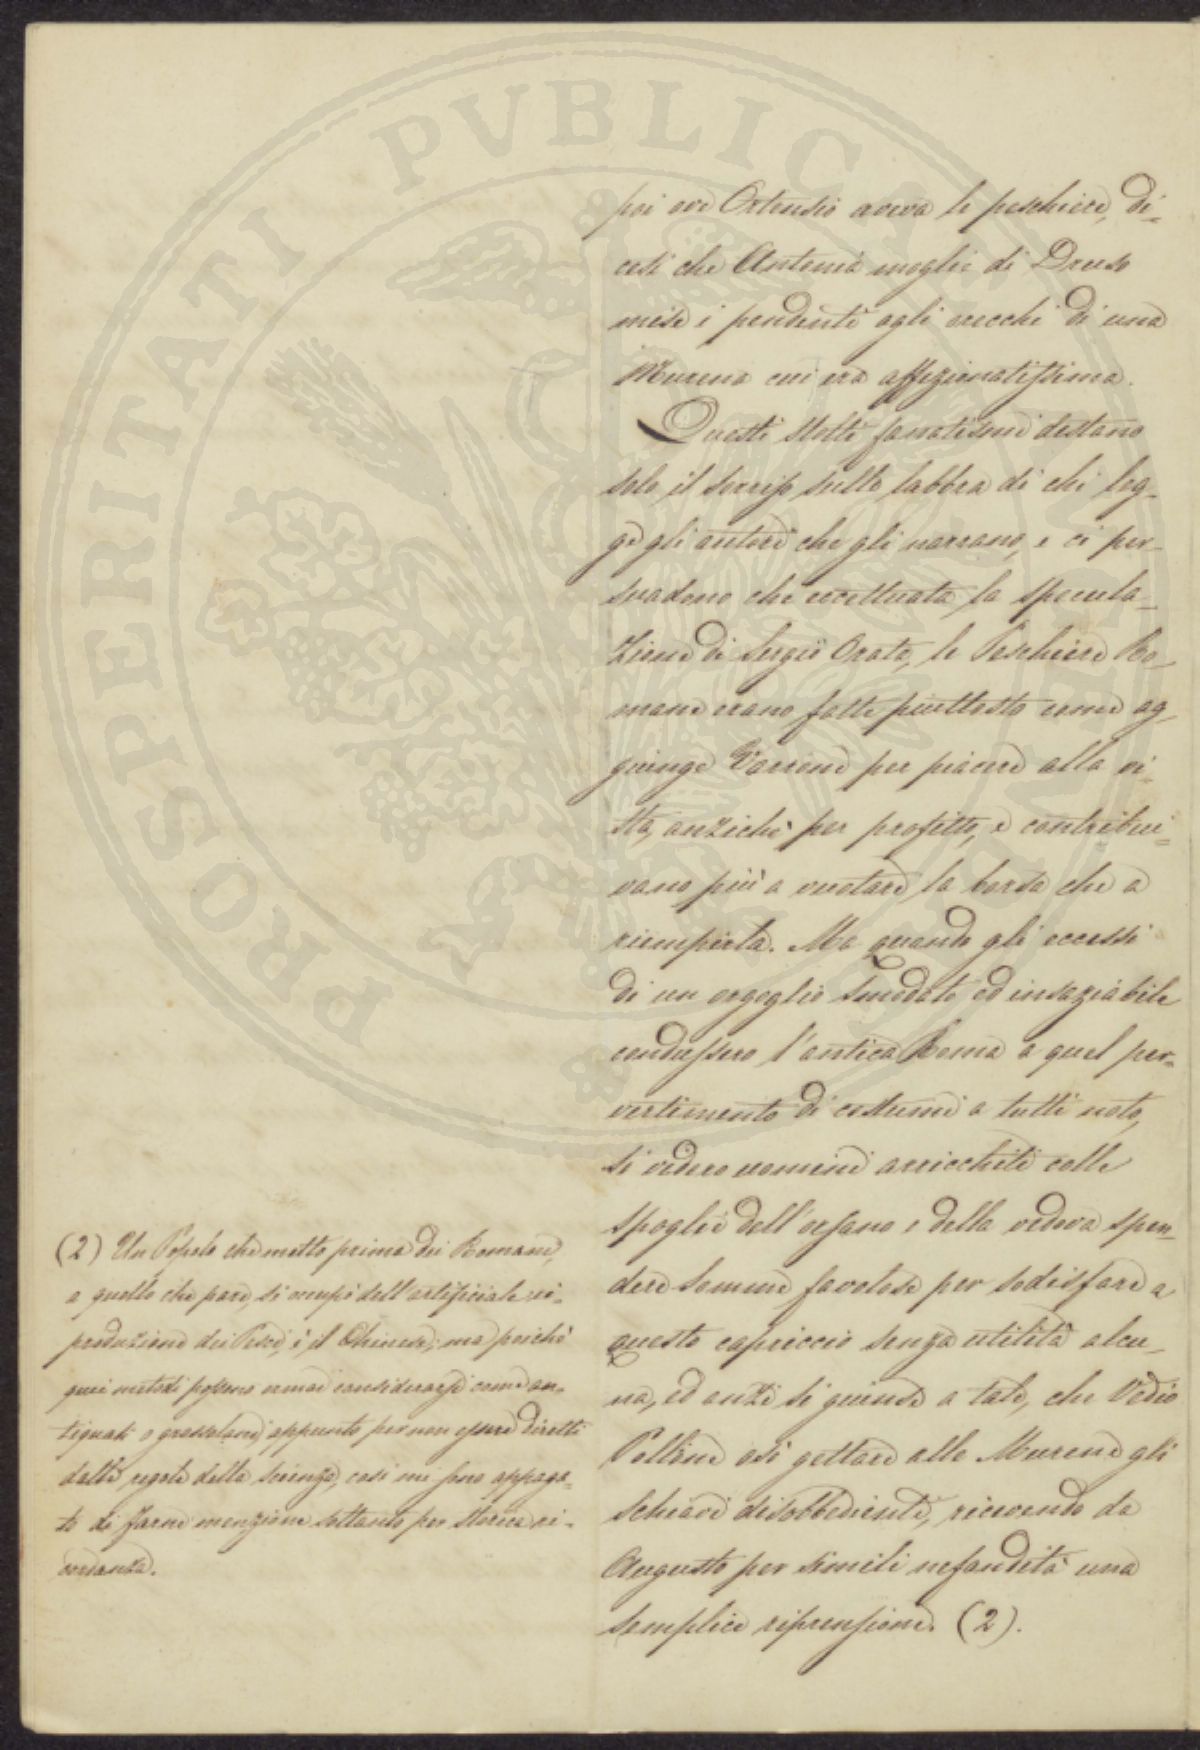 PROSPERITATI PVBLICAE
poi ove Ortensio aveva le peschiere, di=
cesi che Antonia moglie di Druso
mise i pendenti agli orecchi di una
Murena cui era affezionatissima.
Questi stolti fanatismi destano
solo il sorriso sulle labbra di chi leg=
ge gli autori che gli narrano, e ci per=
suadono che eccettuata la specula=
zione di Sergio Orata, le Peschiere Ro=
mane erano fatte piuttosto come ag=
giunge Varrone per piacere alla vi=
sta, anziché per profitto, e contribui=
vano più a vuotare la borsa che a
riempirla. Ma quando gli eccessi
di un orgoglio smodato ed insaziabile
condussero l'antica Roma a quel per=
vertimento di costumi a tutti noto,
si videro uomini arricchiti colle
spoglie dell'orfano e della vedova spen=
dere somme favolose per sodisfare a
questo capriccio senza utilità alcu=
na, ed anzi si giunse a tale, che Vedio
Pollione osò gettare alle Murene gli
schiavi disobbedienti, ricevendo da
Augusto per simili nefandità una
semplice riprensione. (2).
(2) Un Popolo che molto prima dei Romani,
a quello che pare, si occupò dell'artificiale ri=
produzione dei Pesci, è il Chinese; ma poiché
quei metodi possono ormai considerarsi come an=
tiquati e grossolani appunto per non essere diretti
dalle regole della scienza, così mi sono appaga=
to di farne menzione soltanto per storica ri=
cordanza.